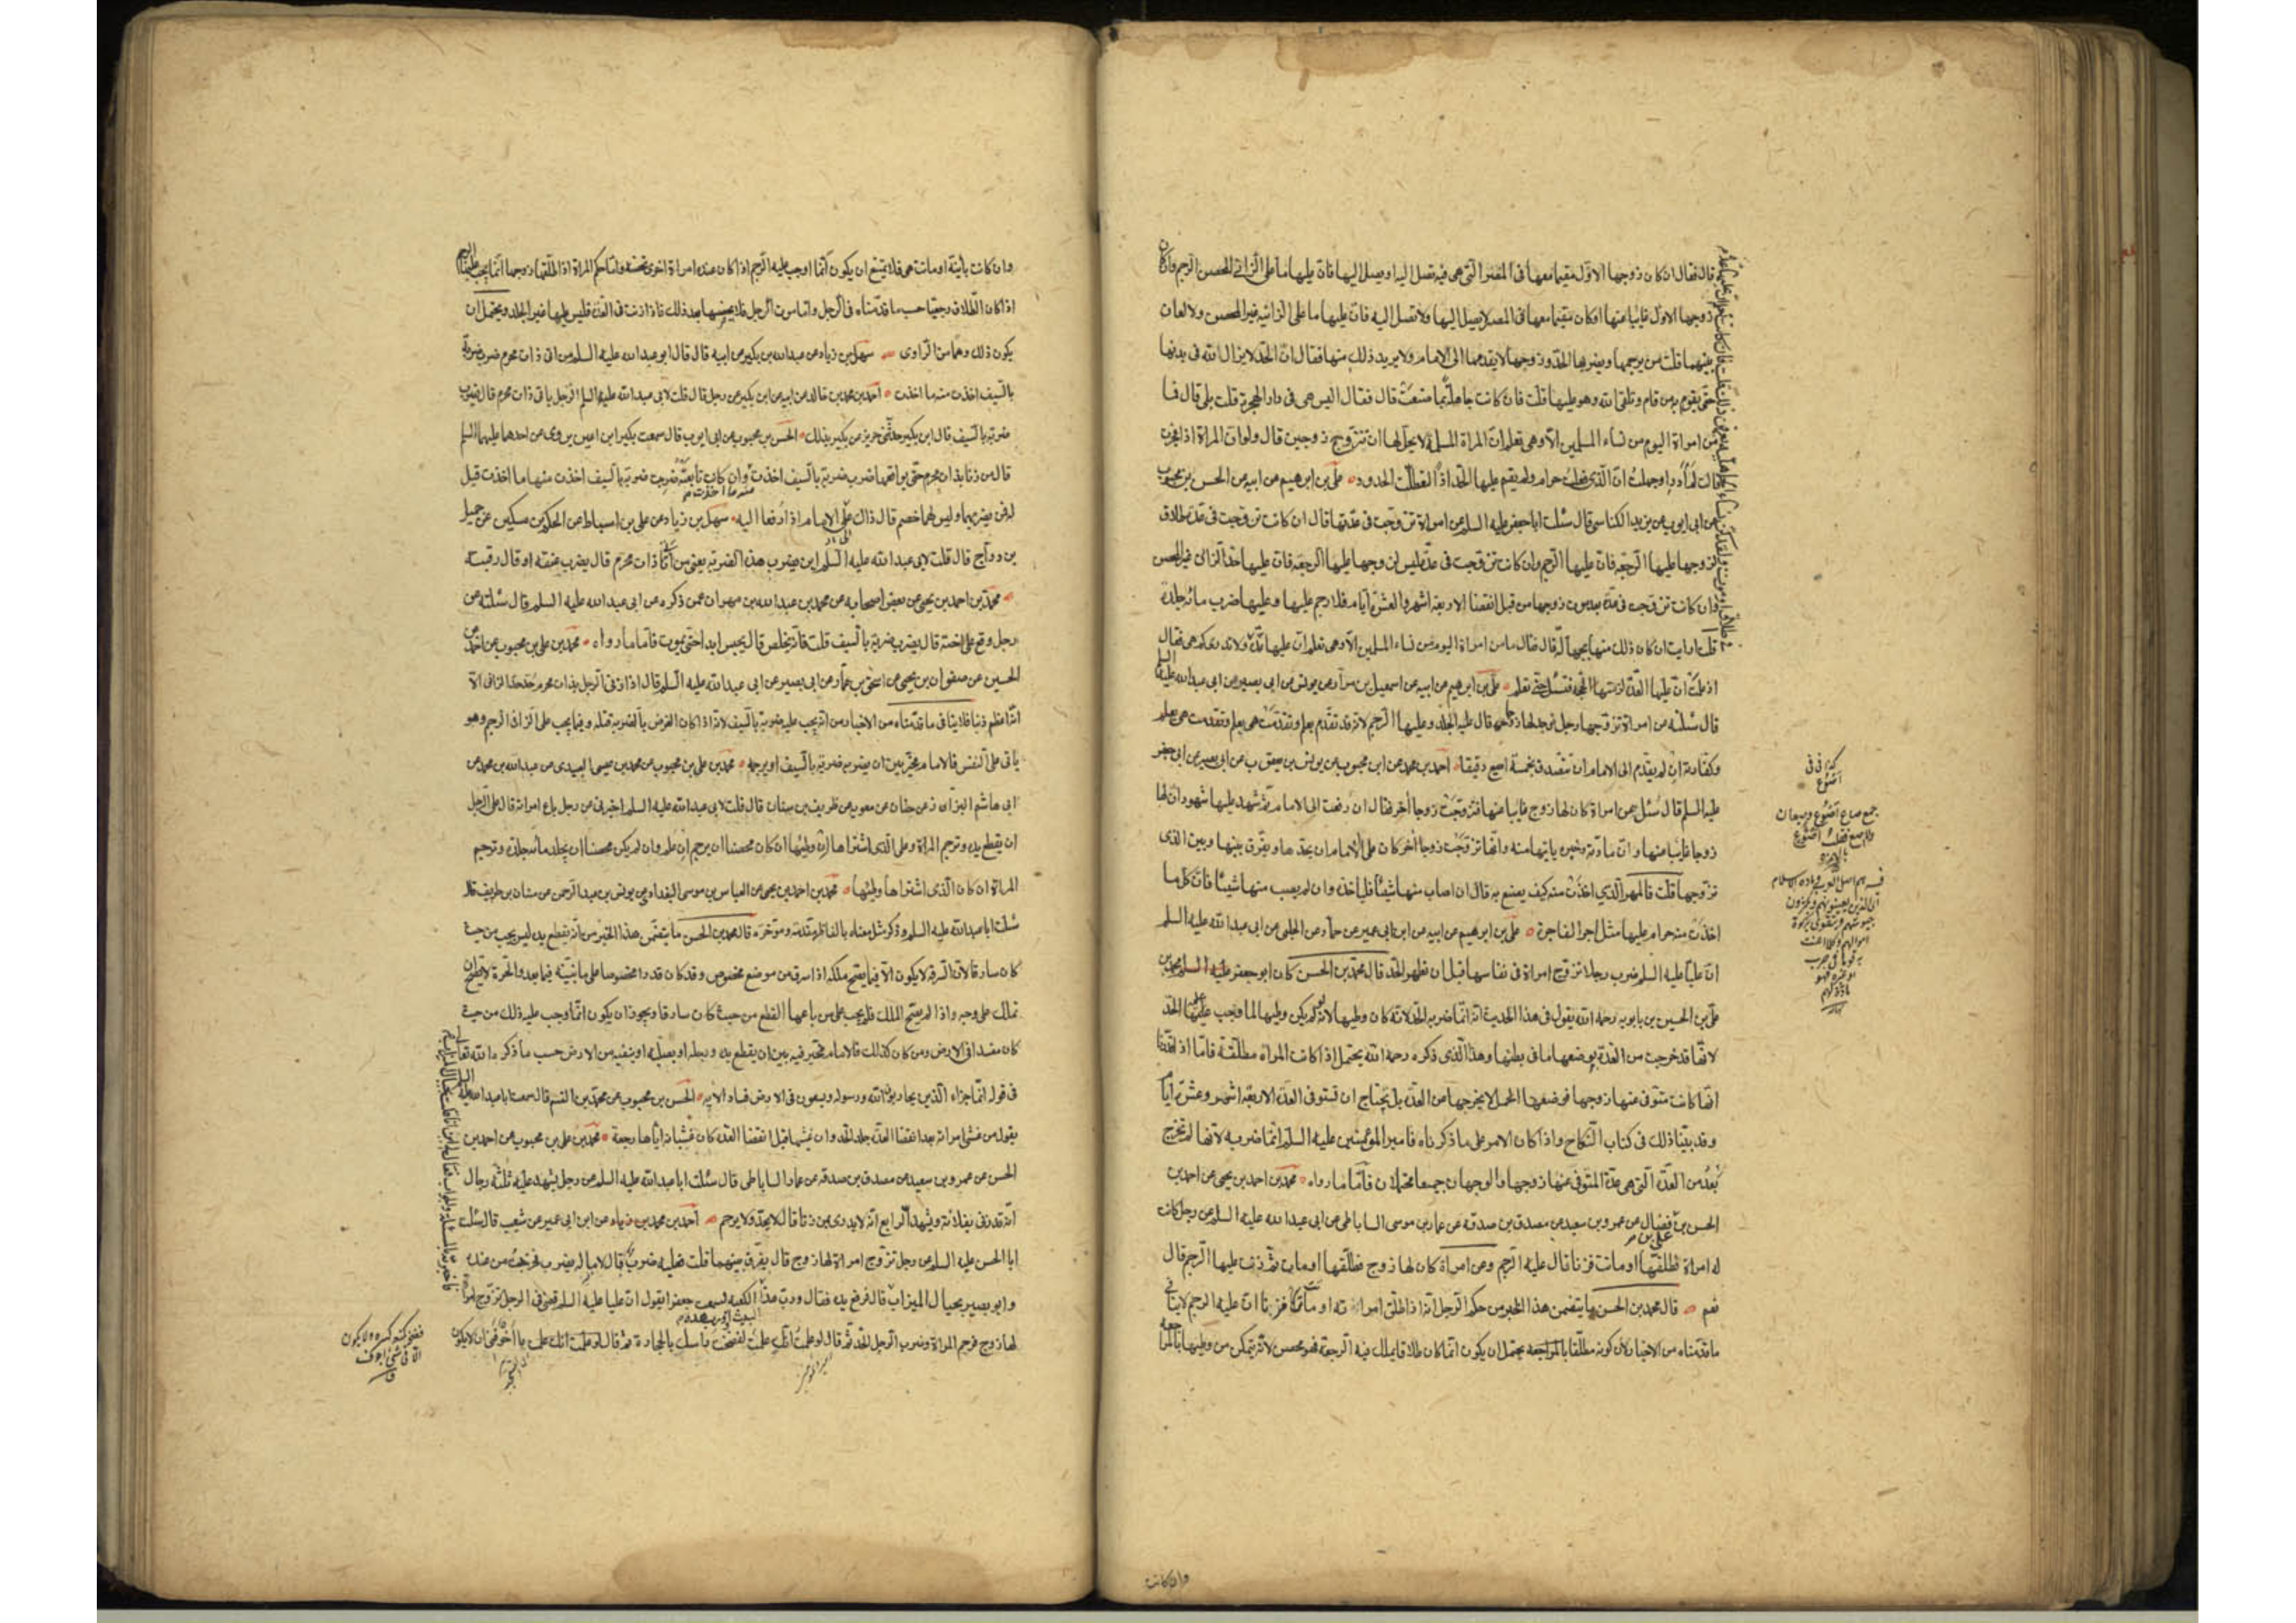 قال فقال ان كان زوجها الاول مقيما معها فى المصر التى هى فيه تصل اليه او يصل اليها فان عليها ما على الزانى المحصن الرجم وان كان
زوجها الاول غايبا عنها او كان مقيما معها فى المصر لا يصل اليها ولا تصل اليه فان عليها ما على الزانية غير المحصن ولا لعان
بينهما قلت من يرجمها او يضربها الحد وزوجها لا يقدمها الى الامام ولا يريد ذلك منها فقال ان الحد لا يزال لله فى بدنها
حتى يقوم به من قام وتلقى الله وهو عليها قلت فان كانت جاهلة بما صنعت قال فقال اليس هى فى دار الهجرة قلت بلى قال فما
من امراة اليوم من نساء المسلمين الا وهى تعلم ان المراة المسلمة لا يحل لها ان تتزوج زوجين قال ولو ان المراة اذا فجرت
قالت لم ادر او جهلت ان الذى فعلت حرام ولم يقم عليها الحد اذا لتعطلت الحدود على بن ابرهيم عن ابيه عن الحسن بن محبوب
عن ابى ايوب عن يزيد الكناسى قال سئلت ابا جعفر عليه السلم عن امراة تزوجت فى عدتها قال ان كانت تزوجت فى عدة طلاق
لزوجها عليها الرجعة فان عليها الرجم وان كانت تزوجت فى عدة ليس لزوجها عليها الرجعة فان عليها حد الزانى غير المحصن
وان كانت تزوجت فى عدة بعد موت زوجها من قبل انقضا الاربعة اشهر والعشرة ايام فلا رجم عليها وعليها ضرب مائة جلدة
قلت ارايت ان كان ذلك منها بجهالة قال فقال ما من امراة اليوم من نساء المسلمين الا وهى تعلم ان عليها عدة ولا تدرى كم هى فقال
اذا علمت ان عليها العدة لزمتها الحجة فتسئل حتى تعلم على بن ابرهيم عن ابيه عن اسمعيل بن مرار عن يونس عن ابى بصير عن ابى عبد الله عليه السلم
قال سئلته عن امراة تزوجها رجل فوجد لها زوجا قال عليه الجلد وعليها الرجم لانه قد تقدم بعلم وتقدمت هى بعلم
وكفارته ان لم يقدم الى الامام ان يتصدق بخمسة اصيع دقيقا احمد بن محمد عن ابن محبوب عن يونس بن يعقوب عن ابى بصير عن ابى جعفر
عليه السلم قال سئل عن امراة كان لها زوج غايبا عنها فتزوجت زوجا اخر فقال ان رفعت الى الامام ثم شهد عليها شهود ان لها
زوجا غايبا عنها وان مادته وخبره ياتيها منه وانها تزوجت زوجا اخر كان على الامام ان يحدها ويفرق بينها وبين الذى
تزوجها قلت فالمهر الذى اخذت منه كيف يصنع به قال ان اصاب منها شيئا فلياخذه وان لم يصب منها شيئا فان كل ما
اخذت منه حرام عليها مثل اجر الفاجرة على بن ابرهيم عن ابيه عن ابن ابى عمير عن حماد عن الحلبى عن ابى عبد الله عليه السلم
ان عليا عليه السلم ضرب رجلا تزوج امراة فى نفاسها قبل ان تطهر الحد قال محمد بن الحسن كان ابو جعفر محمد بن
على بن الحسين بن بابويه رحمه الله يقول فى هذا الحديث انه انما ضربه الحد لانه كان وطيها لانه لو لم يكن وطيها لما وجب عليه الحد
لانها قد خرجت من العدة بوضعها ما فى بطنها وهذا الذى ذكره رحمه الله يحتمل اذا كانت المراة مطلقة فاما اذا قدرنا
انها كانت متوفى عنها زوجها فوضعها الحمل لا يخرجها من العدة بل يحتاج ان تستوفى العدة الاربعة اشهر وعشرة ايام
وقد بينا ذلك فى كتاب النكاح واذا كان الامر على ما ذكرناه فامير المؤمنين عليه السلم انما ضربه لانها لم تخرج
بعد من العدة التى هى عدة المتوفى عنها زوجها والوجهان جميعا محتملان فاما ما رواه محمد بن احمد بن يحيى عن احمد بن
الحسن بن على بن فضال عن عمرو بن سعيد عن مصدق بن صدقة عن عمار بن موسى الساباطى عن ابى عبد الله عليه السلم عن رجل كانت
له امراة فطلقها او ماتت فزنا قال عليه الرجم وعن امراة كان لها زوج فطلقها او مات ثم زنت عليها الرجم قال
نعم قال محمد بن الحسن ما يتضمن هذا الخبر من حكم الرجل انه اذا طلق امراته او ماتت فزنا ان عليه الرجم لا ينافى
ما قدمناه من الاخبار لان كونه مطلقا يحتمل ان يكون انما كان طلاقا يملك فيه الرجعة فهو محصن لانه يتمكن من وطيها بالمراجعة
جمع صاع اصوع وصيعان
وان كانت
وان كانت باينة او ماتت هى فلا يمتنع ان يكون انما اوجب عليه الرجم اذا كان عنده امراة اخرى تحصنه واما حكم المراة اذا طلقها زوجها انما يجب عليها الرجم
اذا كان الطلاق رجعيا حسب ما قدمناه فى الرجل واما موت الرجل فلا يحصنها بعد ذلك فاذا زنت فى العدة فليس عليها غير الجلد ويحتمل ان
يكون ذلك وهما من الراوى سهل بن زياد عن عبد الله بن بكير عن ابيه قال قال ابو عبد الله عليه السلم من اتى ذات محرم ضرب ضربة
بالسيف اخذت منه ما اخذت احمد بن محمد بن خالد عن ابيه عن ابن بكير عن رجل قال قلت لابى عبد الله عليه السلم الرجل ياتى ذات محرم قال يضرب
ضربة بالسيف قال ابن بكير حدثنى حريز عن بكير بذلك الحسن بن محبوب عن ابى ايوب قال سمعت بكير بن اعين يروى عن احدهما عليهما السلم
قال من زنا بذات محرم حتى يواقعها ضرب ضربة بالسيف اخذت منه ما اخذت وان كانت تابعته ضربت ضربة بالسيف اخذت منها ما اخذت قيل
له فمن يضربهما وليس لهما خصم قال ذاك على الامام اذا رفعا اليه سهل بن زياد عن على بن اسباط عن الحكم بن مسكين عن جميل
بن دراج قال قلت لابى عبد الله عليه السلم اين يضرب هذه الضربة يعنى من اتى ذات محرم قال يضرب عنقه او قال رقبته
محمد بن احمد بن يحيى عن بعض اصحابه عن محمد بن عبد الله بن مهران عمن ذكره عن ابى عبد الله عليه السلم قال سئلته عن
رجل وقع على اخته قال يضرب ضربة بالسيف قلت فانه يخلص قال يحبس ابدا حتى يموت فاما ما رواه محمد بن على بن محبوب عن احمد عن
الحسين عن صفوان بن يحيى عن اسحق بن عمار عن ابى بصير عن ابى عبد الله عليه السلم قال اذا زنى الرجل بذات محرم حد حد الزانى الا
انه اعظم ذنبا فلا ينافى ما قدمناه من الاخبار من انه يجب عليه ضربة بالسيف لانه اذا كان الغرض بالضربة قتله وفيما يجب على الزانى الرجم وهو
ياتى على النفس فالامام مخير بين ان يضربه ضربة بالسيف او يرجمه محمد بن على بن محبوب عن محمد بن عيسى العبيدى عن عبد الله بن محمد عن
ابى هاشم البزاز عن حنان عن معوية عن طريف بن سنان قال قلت لابى عبد الله عليه السلم اخبرنى عن رجل باع امراته قال على الرجل
ان يقطع يده وترجم المراة وعلى الذى اشتراها ان وطئها ان كان محصنا ان يرجم ان علم وان لم يكن محصنا ان يجلد مائة جلدة وترجم
المراة ان كان الذى اشتراها وطئها محمد بن احمد بن يحيى عن العباس بن موسى البغدادى عن يونس بن عبد الرحمن عن سنان بن طريف قال
سئلت ابا عبد الله عليه السلم وذكر مثل معناه بالفاظ مقدمة وموخرة قال محمد بن الحسن ما يتضمن هذا الخبر من انه يقطع يده ليس يجب من حيث
كان سارقا لان السرقة لا يكون الا فيما يصح ملكه اذا سرق من موضع مخصوص وقد كان قدرا مخصوصا على ما نبينه فيما بعد والحرة لا يصح ان
تملك على وجه واذا لم يصح الملك فلم يجب على من باعها القطع من حيث كان سارقا ويجوز ان يكون انما وجب عليه ذلك من حيث
كان مفسدا فى الارض ومن كان كذلك فالامام مخير فيه بين ان يقطع يده ورجله او يصلبه او ينفيه من الارض حسب ما ذكره الله تعالى
فى قوله انما جزاء الذين يحاربون الله ورسوله ويسعون فى الارض فسادا الاية الحسن بن محبوب عن محمد بن القسم قال سمعت ابا عبد الله عليه السلم
يقول من غشى امراته بعد انقضا العدة جلد الحد وان غشيها قبل انقضا العدة كان غشيانه اياها رجعة محمد بن على بن محبوب عن احمد بن
الحسن عن عمرو بن سعيد عن مصدق بن صدقة عن عمار الساباطى قال سئلت ابا عبد الله عليه السلم عن رجل يشهد عليه ثلثة رجال
انه قد زنى بفلانة ويشهد الرابع انه لا يدرى بمن زنا قال لا يحد ولا يرجم احمد بن محمد عن ابن ابى عمير عن شعيب قال سئلت
ابا الحسن عليه السلم عن رجل تزوج امراة لها زوج قال يفرق بينهما قلت فعليه ضرب قال لا ما له يضرب فخرجت من عنده
وابو بصير بحيال الميزاب قال فرفع يده فقال ورب هذا الكعبة لسمعت جعفرا يقول ان عليا عليه السلم قضى فى الرجل تزوج امراة
لها زوج فرجم المراة وضرب الرجل الحد ثم قال لو علمت انك علمت لفضخت راسك بالحجارة ثم قال ما اخوفنى ان لا يكون